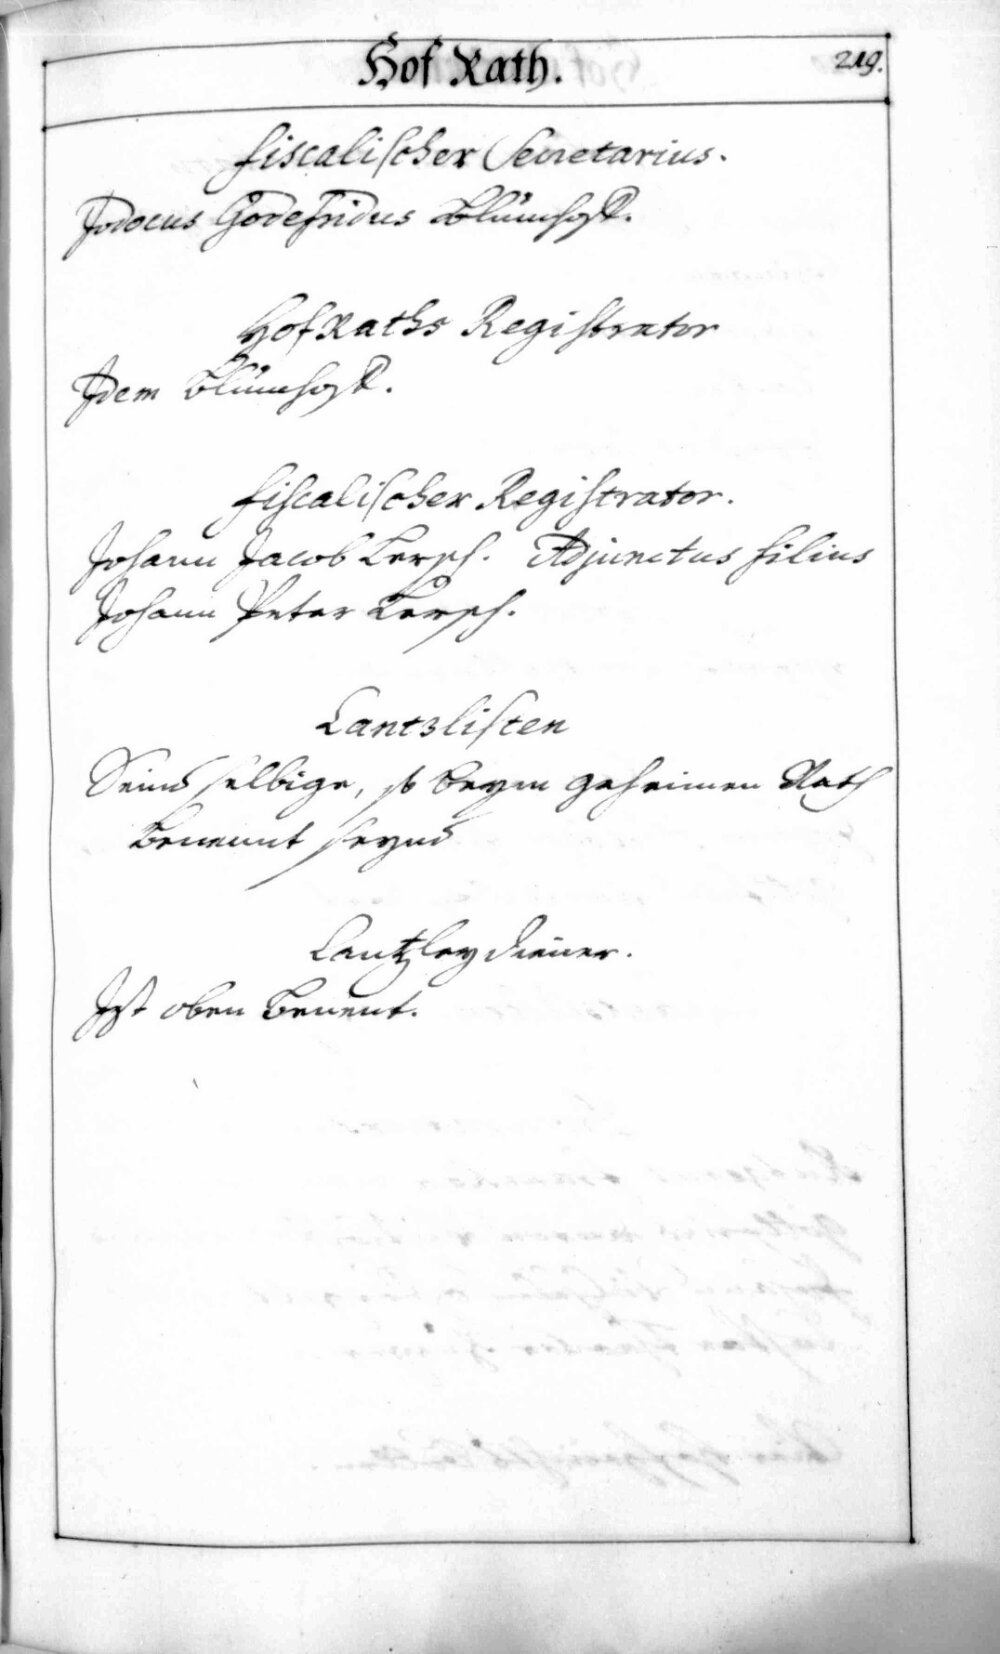 Hof Rath.
219.
fiscalischer Secretarius.
Jodocus Godefridus Blümhofft.
HofRaths Registrator
Idem Blümhofft.
fiscalischer Registrator.
Johann Jacob Lersch. Adjunctus filius
Johann Peter Lersch.
Cantzlisten
Seind selbige, so beym geheimen Rath
benennt seynd
Cantzley diener.
Ist oben benent.